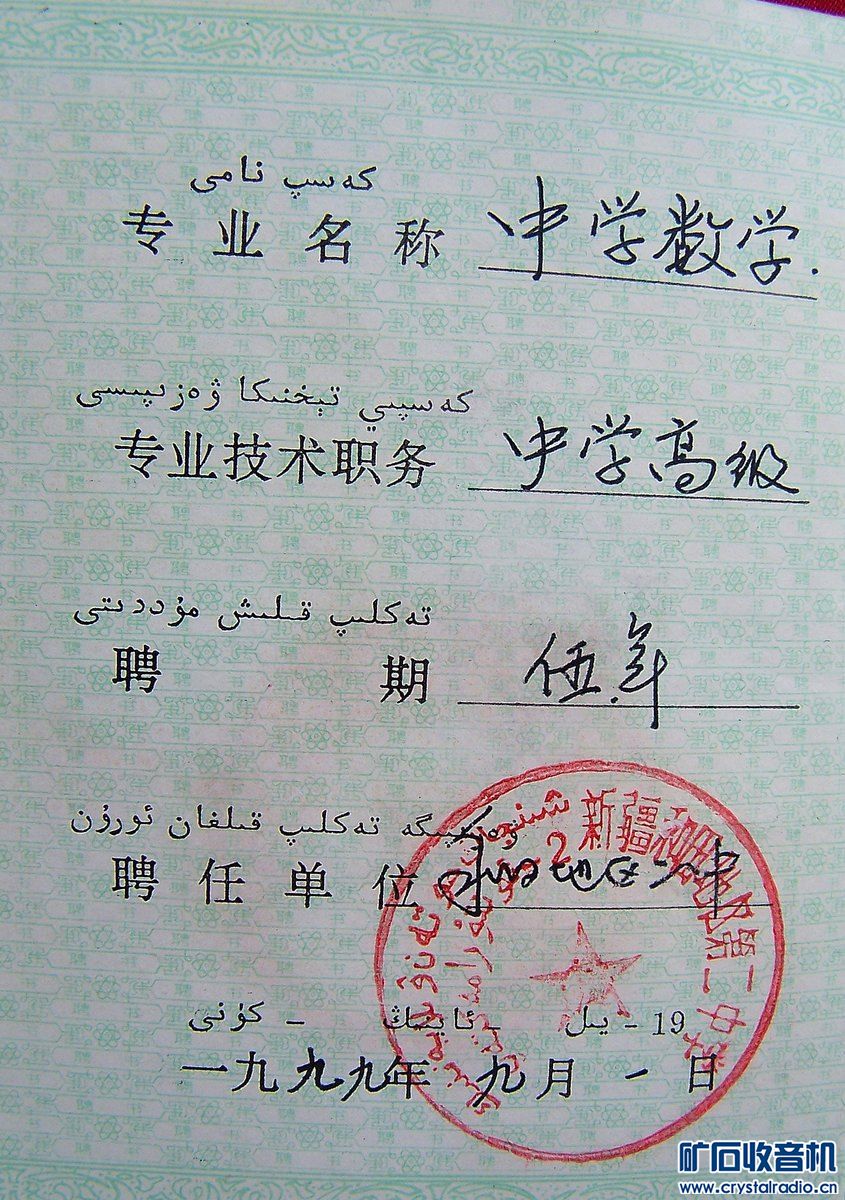 كەسىپ نامى
专业名称 中学数学.
كەسپىي تېخنىكا ۋەزىپىسى
专业技术职务 中学高级
تەكلىپ قىلىش مۇددىتى
聘期 伍年
ۋەزىپىگە تەكلىپ قىلغان ئورۇن
聘任单位 地区二中
新疆 第二中学
19 - يىل - ئاينىڭ - كۈنى
一九九九年九月一日
矿石收音机
www.crystalradio.cn